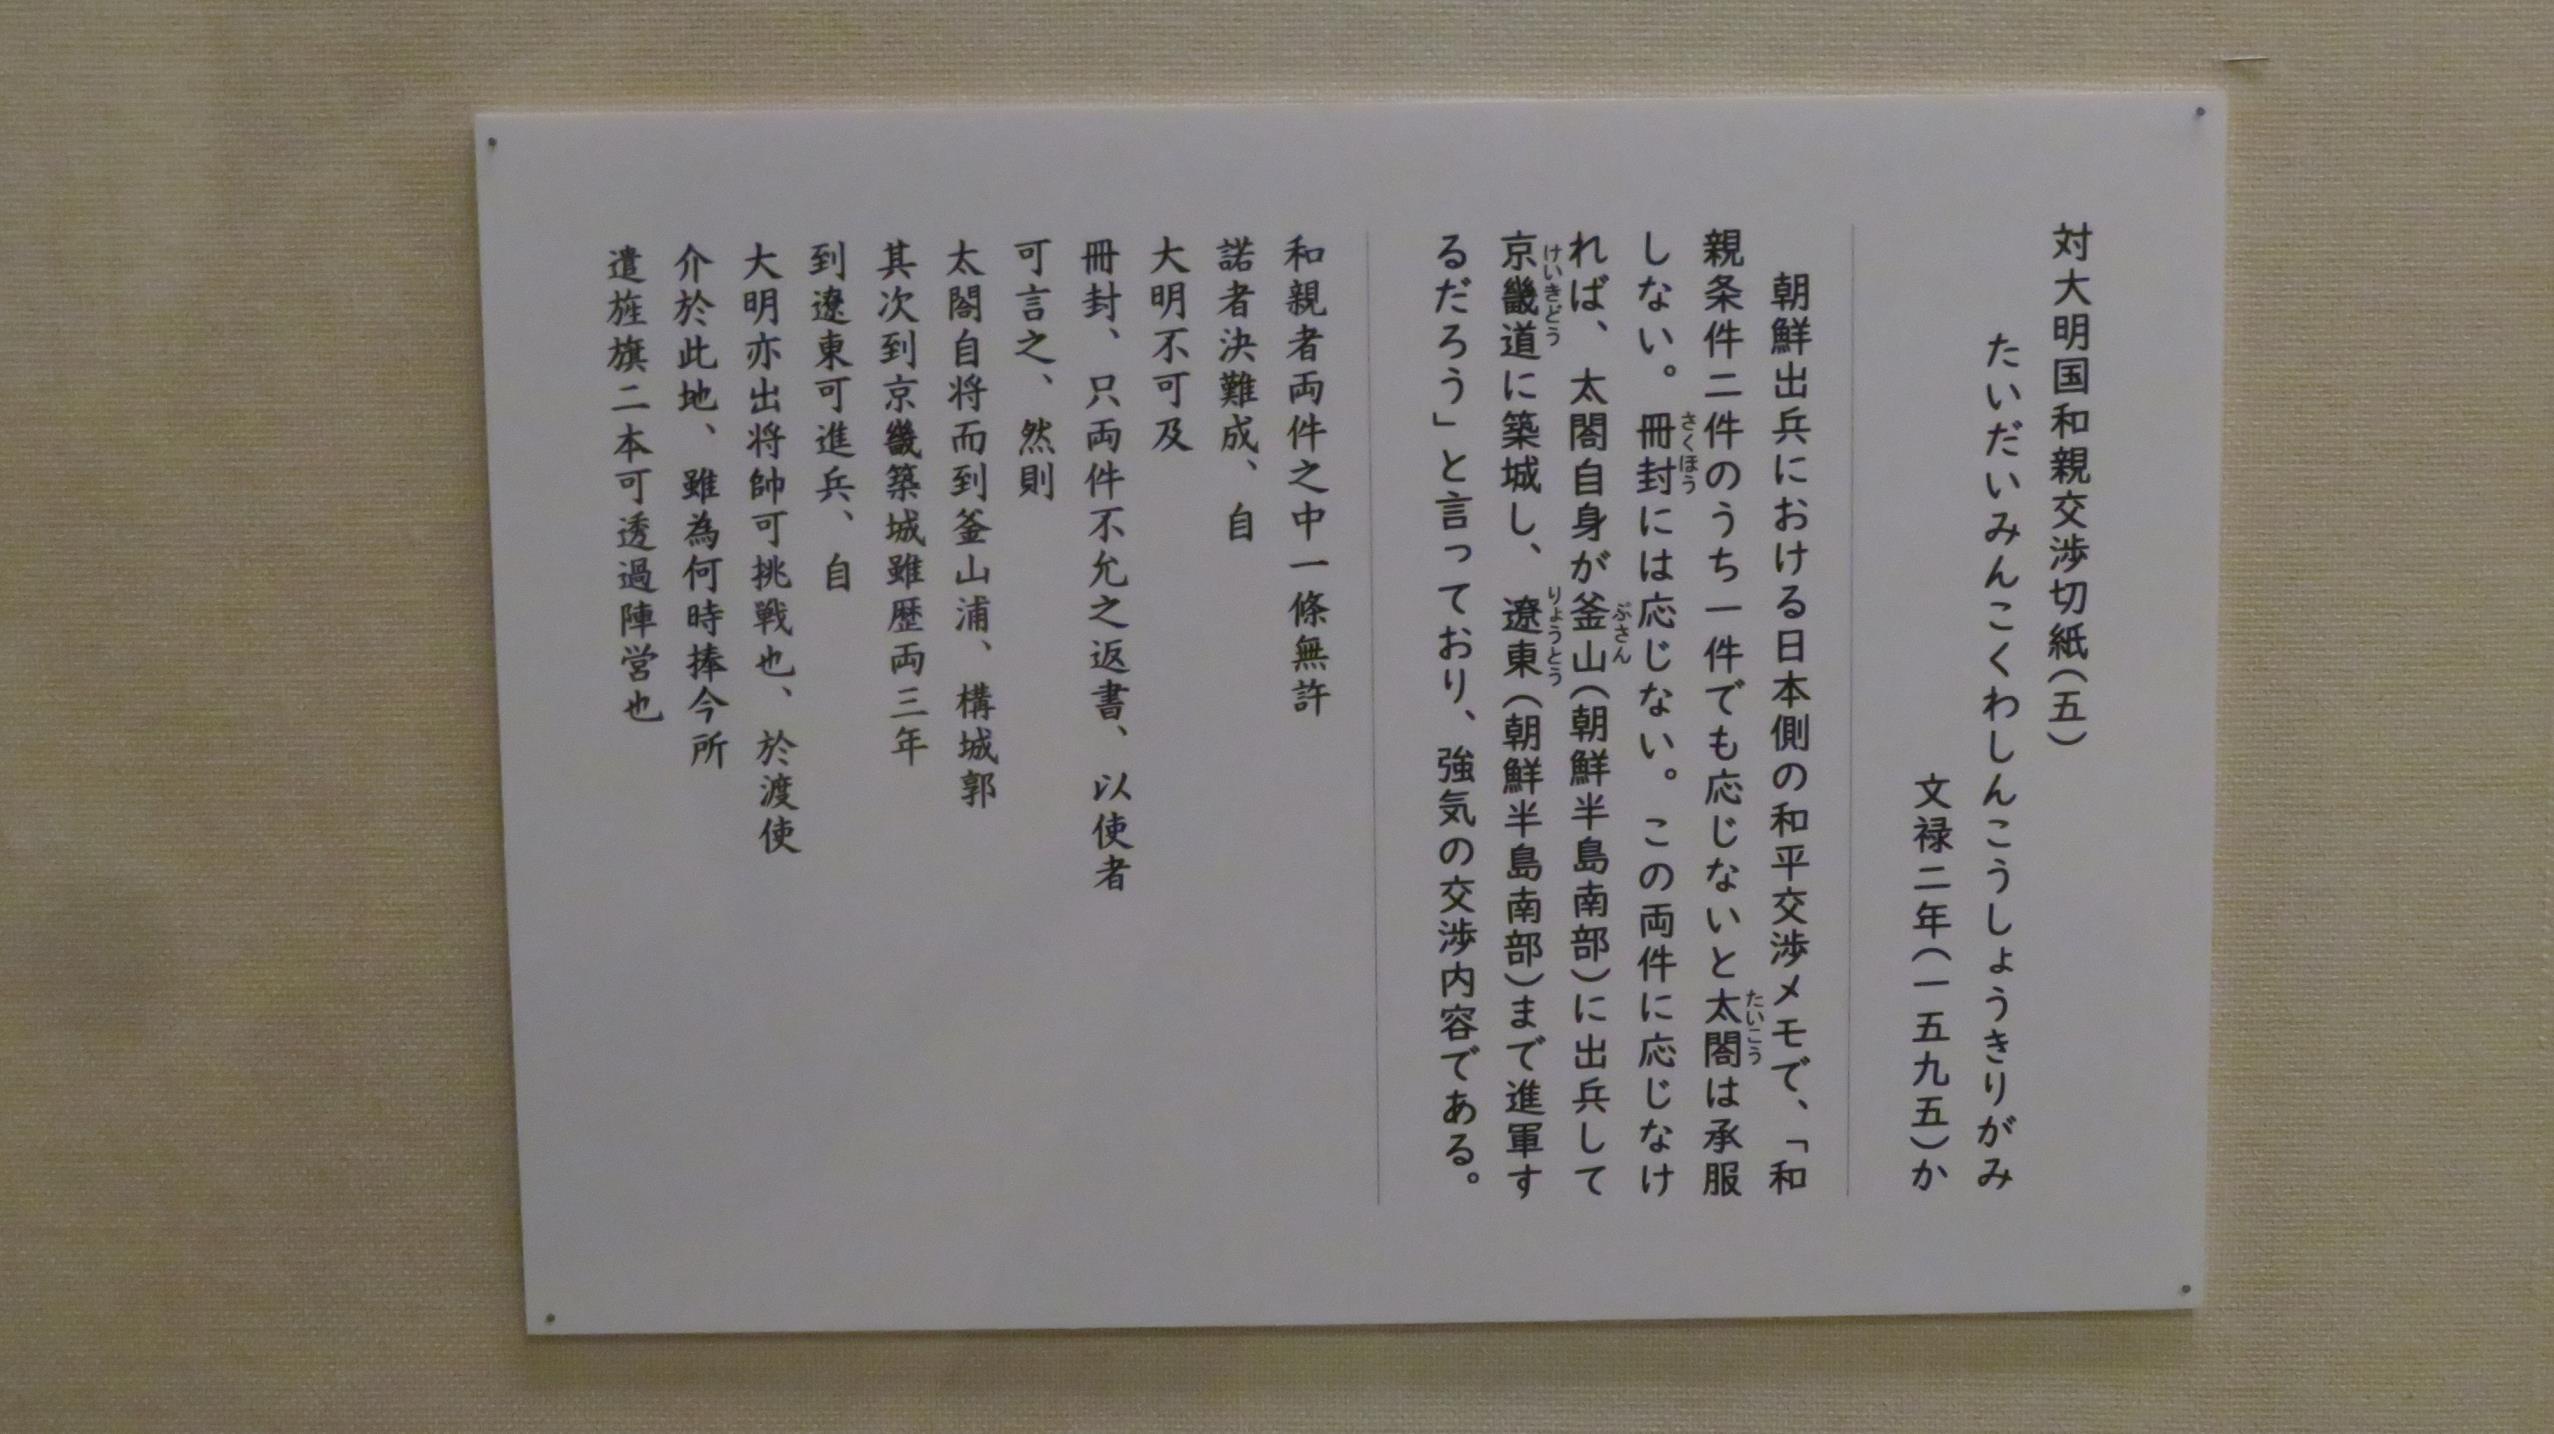 対大明国和親交渉切紙(五)
たいだいみんこくわしんこうしょうきりがみ
文禄二年(一五九五)か
朝鮮出兵における日本側の和平交渉メモで、「和
親条件二件のうち一件でも応じないと太閤は承服
たいこう
しない。冊封には応じない。この両件に応じなけ
さくほう
れば、太閤自身が釜山(朝鮮半島南部)に出兵して
ぷさん
京畿道に築城し、遼東(朝鮮半島南部)まで進軍す
けいきどう
りょうとう
るだろう」と言っており、強気の交渉内容である。
和親者両件之中一條無許
諾者決難成、自
大明不可及
冊封、只両件不允之返書、以使者
可言之、然則
太閤自将而到釜山浦、構城郭
其次到京畿築城雖歴両三年
到遼東可進兵、自
大明亦出将帥可挑戦也、於渡使
介於此地、雖為何時捧今所
遣旌旗二本可透過陣営也